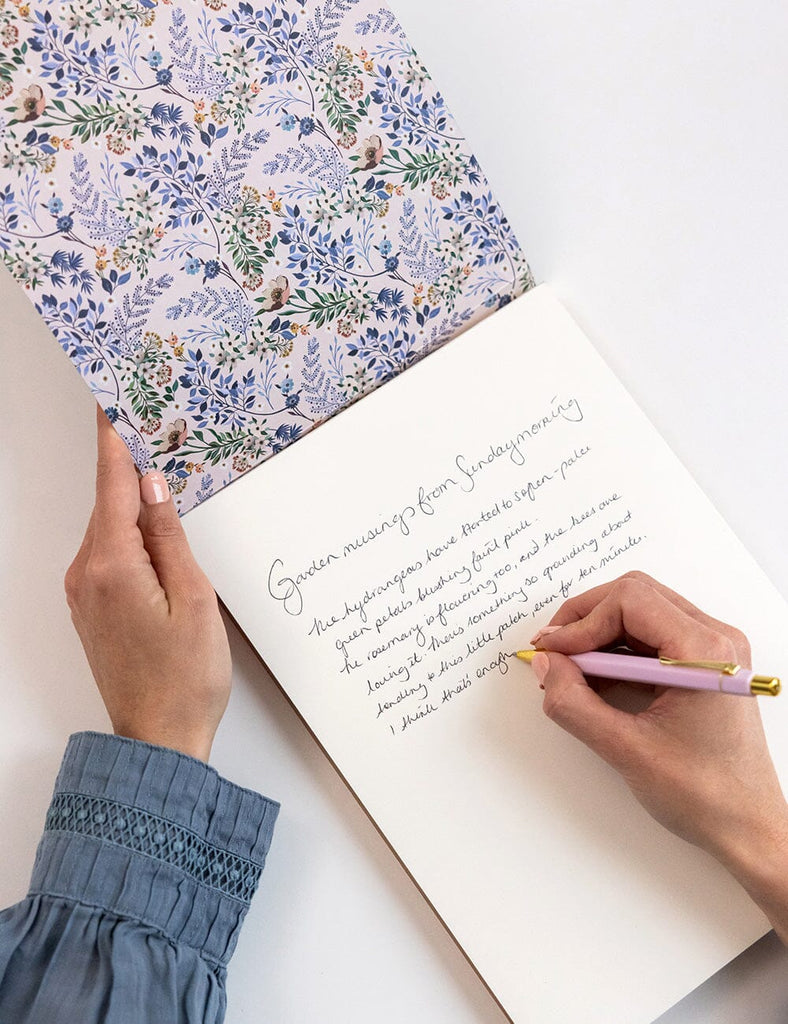 Garden musings from Sunday morning
The hydrangeas have started to soften - pale
green petals blushing faint pink.
The rosemary is flowering too, and the bees are
loving it. There's something so grounding about
tending to this little patch, even for ten minutes.
I think that's enough